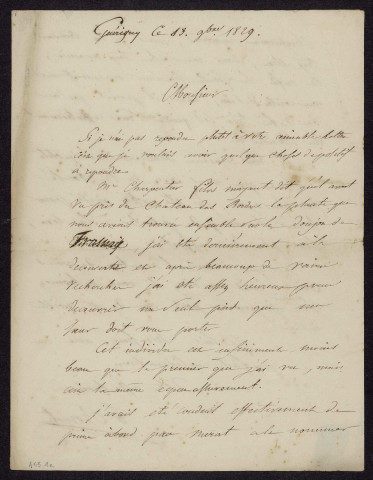 Guérigny ce 13. 9bre 1829.
Monsieur
Si je n'ai pas repondu plutot à votre aimable lettre
c'est que je voulais avoir quelque chose de positif
à repondre.
Mr Charpentier fils m'ayant dit qu'il avait
vu près du Chateau des Bordes la plante que
nous avions trouvée ensemble sur le donjon de
j'ai été dernierement à la
decouverte et après beaucoup de vaines
recherches j'ai été assez heureux pour
decouvrir un seul pied que ma
sœur doit vous porter
Cet individu est infiniment moins
beau que le premier que j'ai vu, mais
c'est la même espece assurement.
j'avais été conduit effectivement de
prime abord par Merat à le nommer